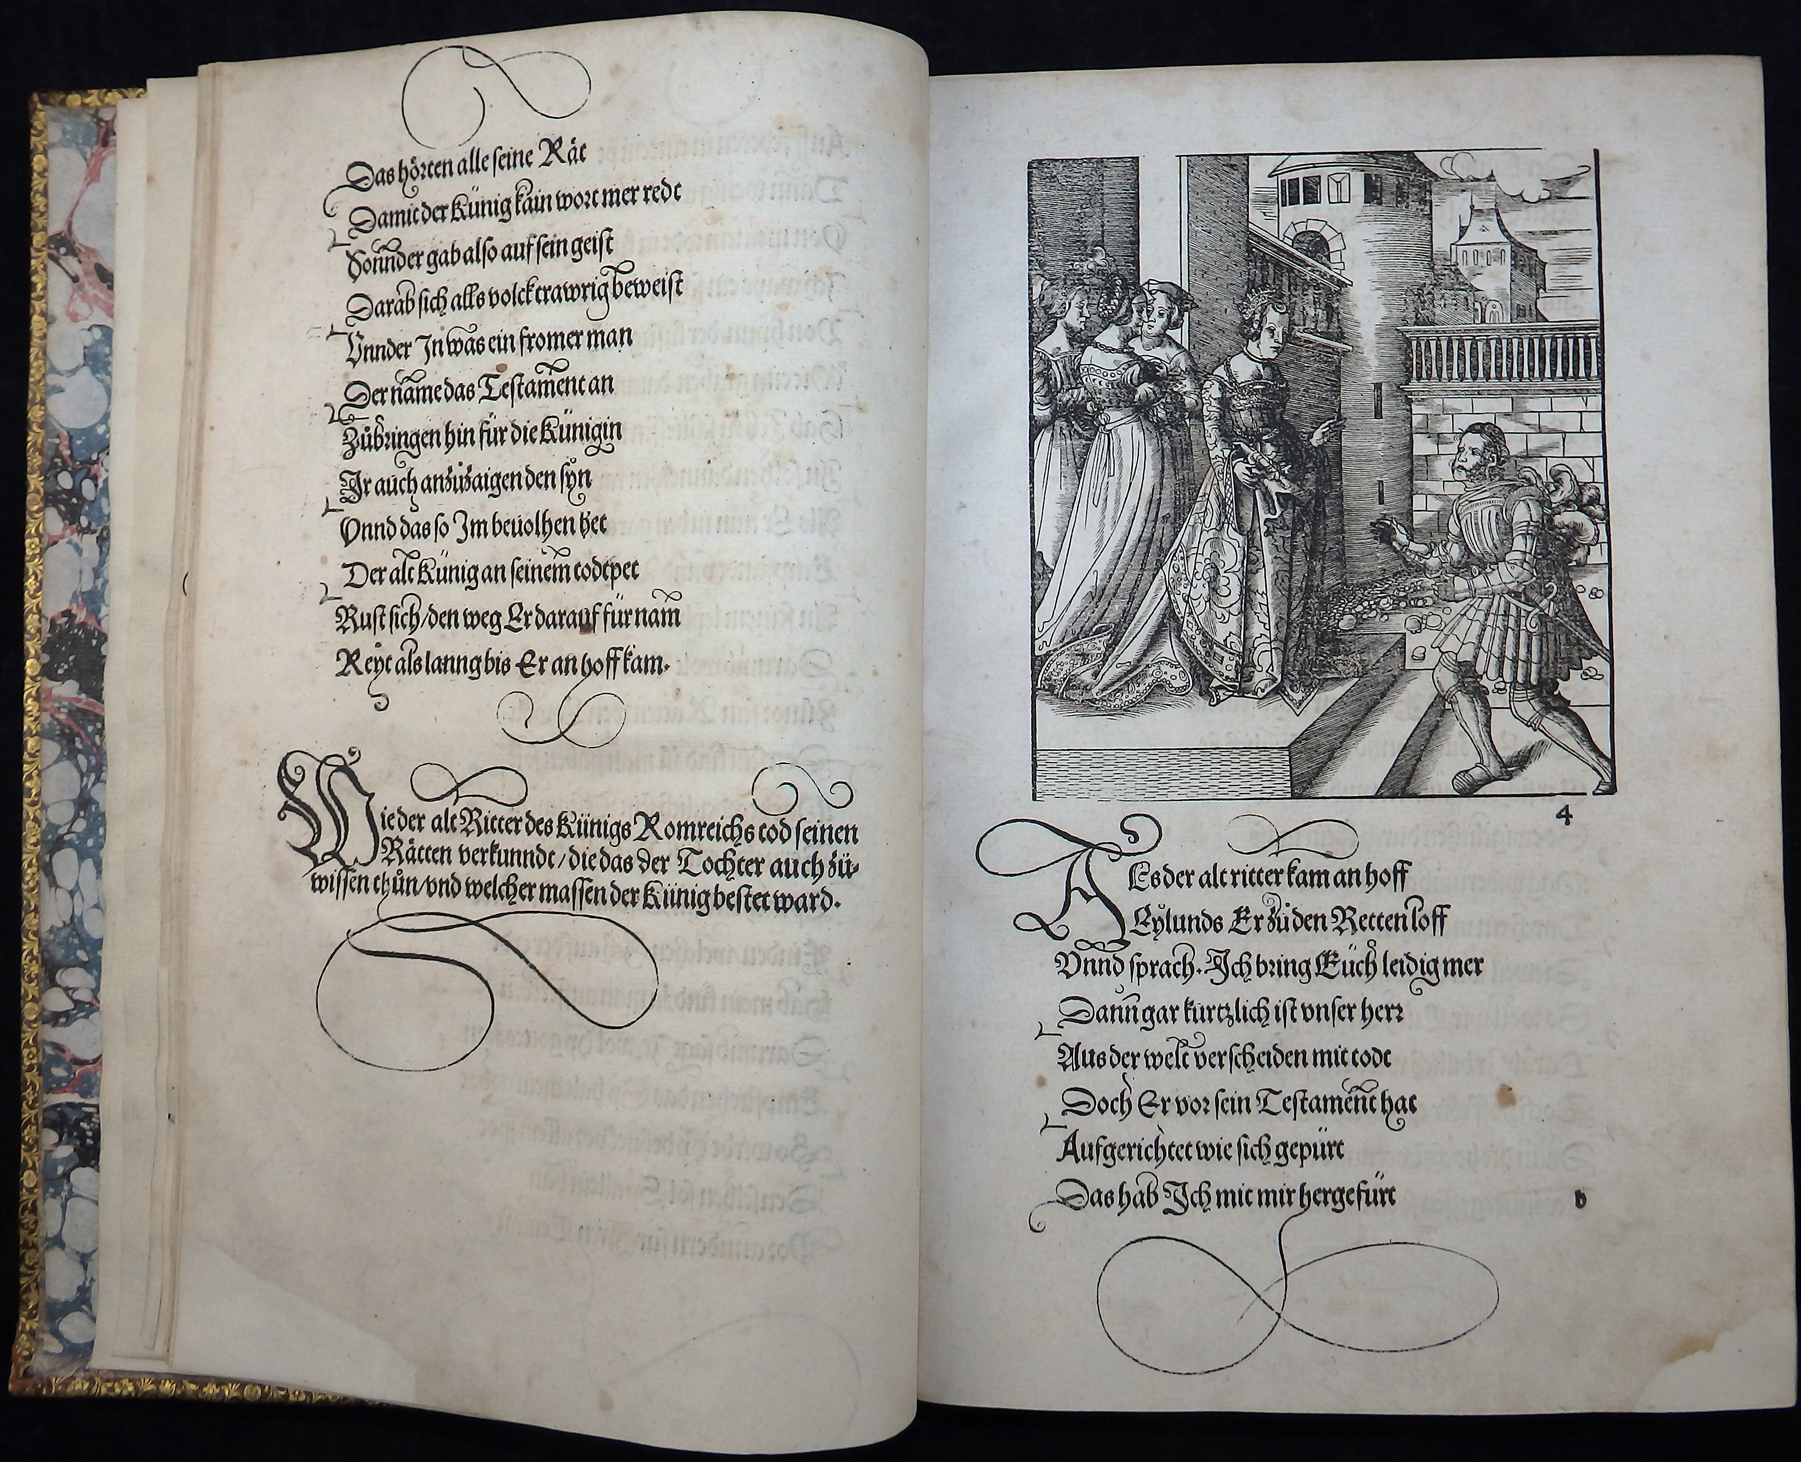 Das hörten alle seine Rät
Damit der Künig kain wort mer redt
Sonnder gab also auf sein geist
Darab sich alls volck trawrig beweist
Vnnder In was ein fromer man
Der name das Testament an
Zůbringen hin für die Künigin
Ir auch anzůzaigen den syn
Vnnd das so Im beuolhen het
Der alt Künig an seinem todtpet
Rust sich/den weg Er darauf für nam
Reyt als lanng bis Er an hoff kam.
Wie der alt Ritter des Künigs Romreichs tod seinen
Rätten verkunndt/die das der Tochter auch zů-
wissen thůn/vnd welcher massen der Künig bestet ward.
4
Als der alt ritter kam an hoff
Eylunds Er zů den Retten loff
Vnnd sprach. Ich bring Eüch leidig mer
Dann gar kurtzlich ist vnser herr
Aus der welt verscheiden mit todt
Doch Er vor sein Testament hat
Aufgerichtet wie sich gepürt
Das hab Ich mit mir hergefürt
b